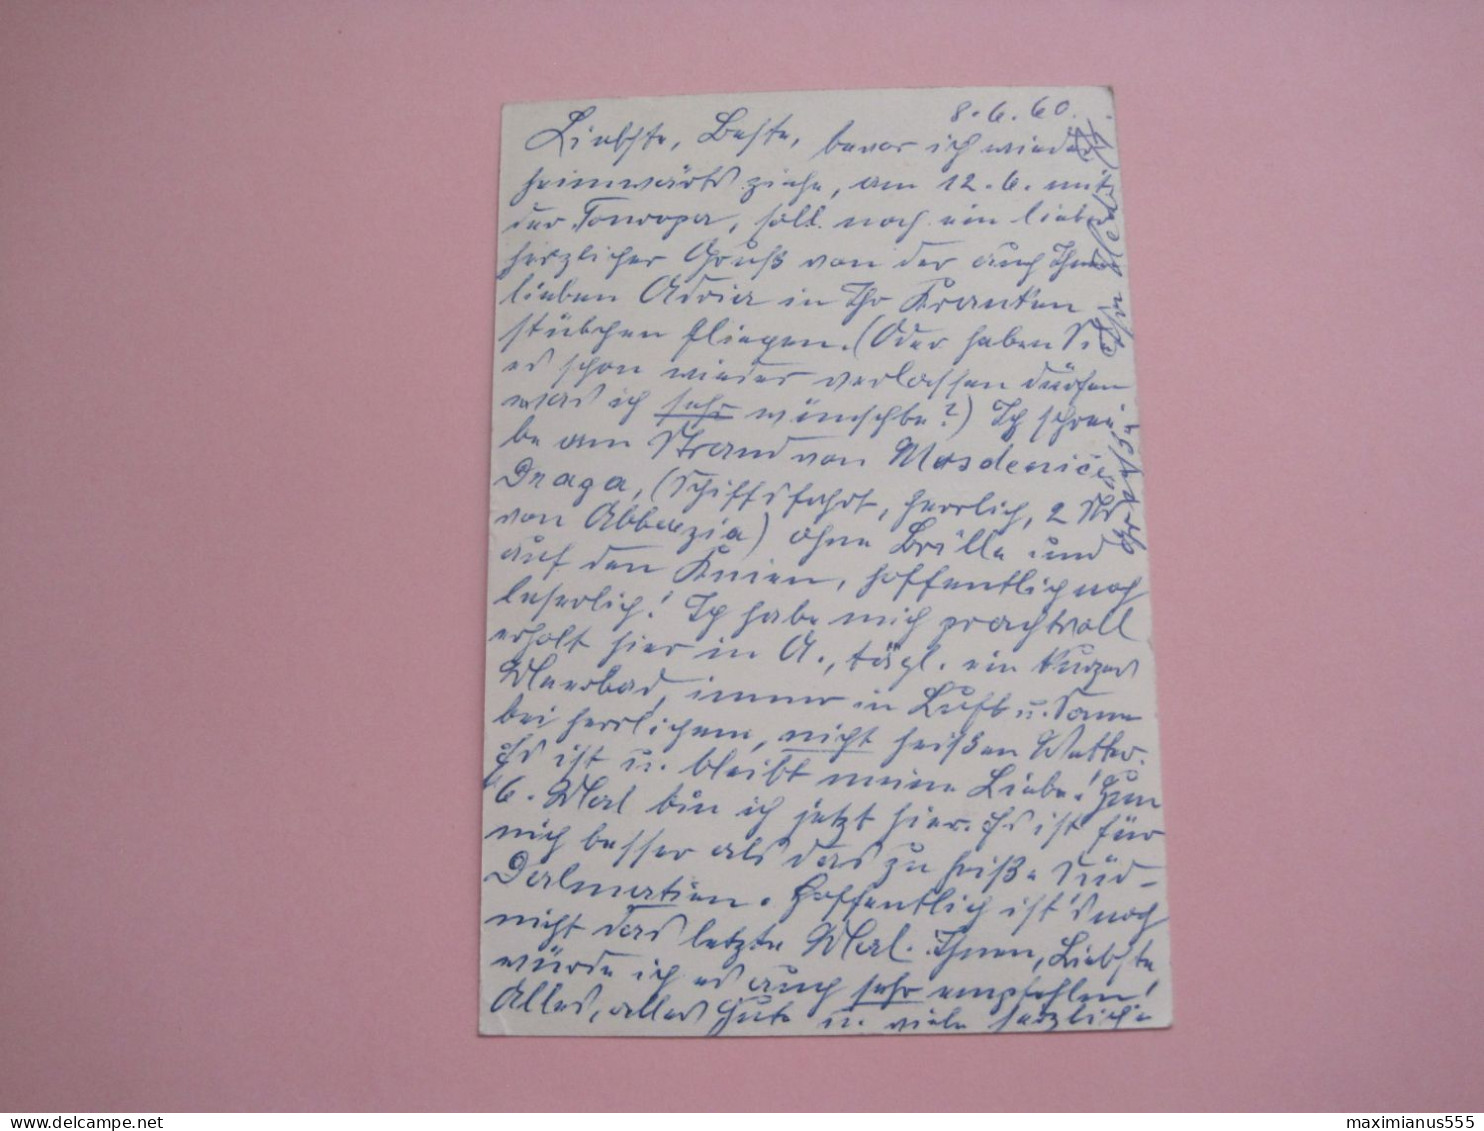 8.6.60.
Liebste, Beste, bevor ich wieder
heimwärts ziehe, am 12.6. mit
der Touropa, soll noch ein lieber
herzlicher Gruß von der auch Ihnen
lieben Adria in Ihr Kranken
stübchen fliegen. (Oder haben Sie
es schon wieder verlassen dürfen
was ich sehr wünschte?) Ich schrei-
be am Strand von Mosdenice
Draga, (Schiffsfahrt, herrlich, 2 Std
von Abbazia) ohne Brille und
auf den Knien, hoffentlich noch
leserlich! Ich habe mich prachtvoll
erholt hier in A., tägl. ein kurzes
Meerbad, immer in Luft u. Sonne
bei herrlichem, nicht heißen Wetter.
Es ist u. bleibt meine Liebe! Zum
6. Mal bin ich jetzt hier. Es ist für
mich besser als das zu heiße Süd-
Dalmatien. Hoffentlich ist's noch
nicht das letzte Mal. Ihnen, Liebste
würde ich es auch sehr empfehlen!
Alles, alles Gute u. viele herzliche
Grüße
maximianus555